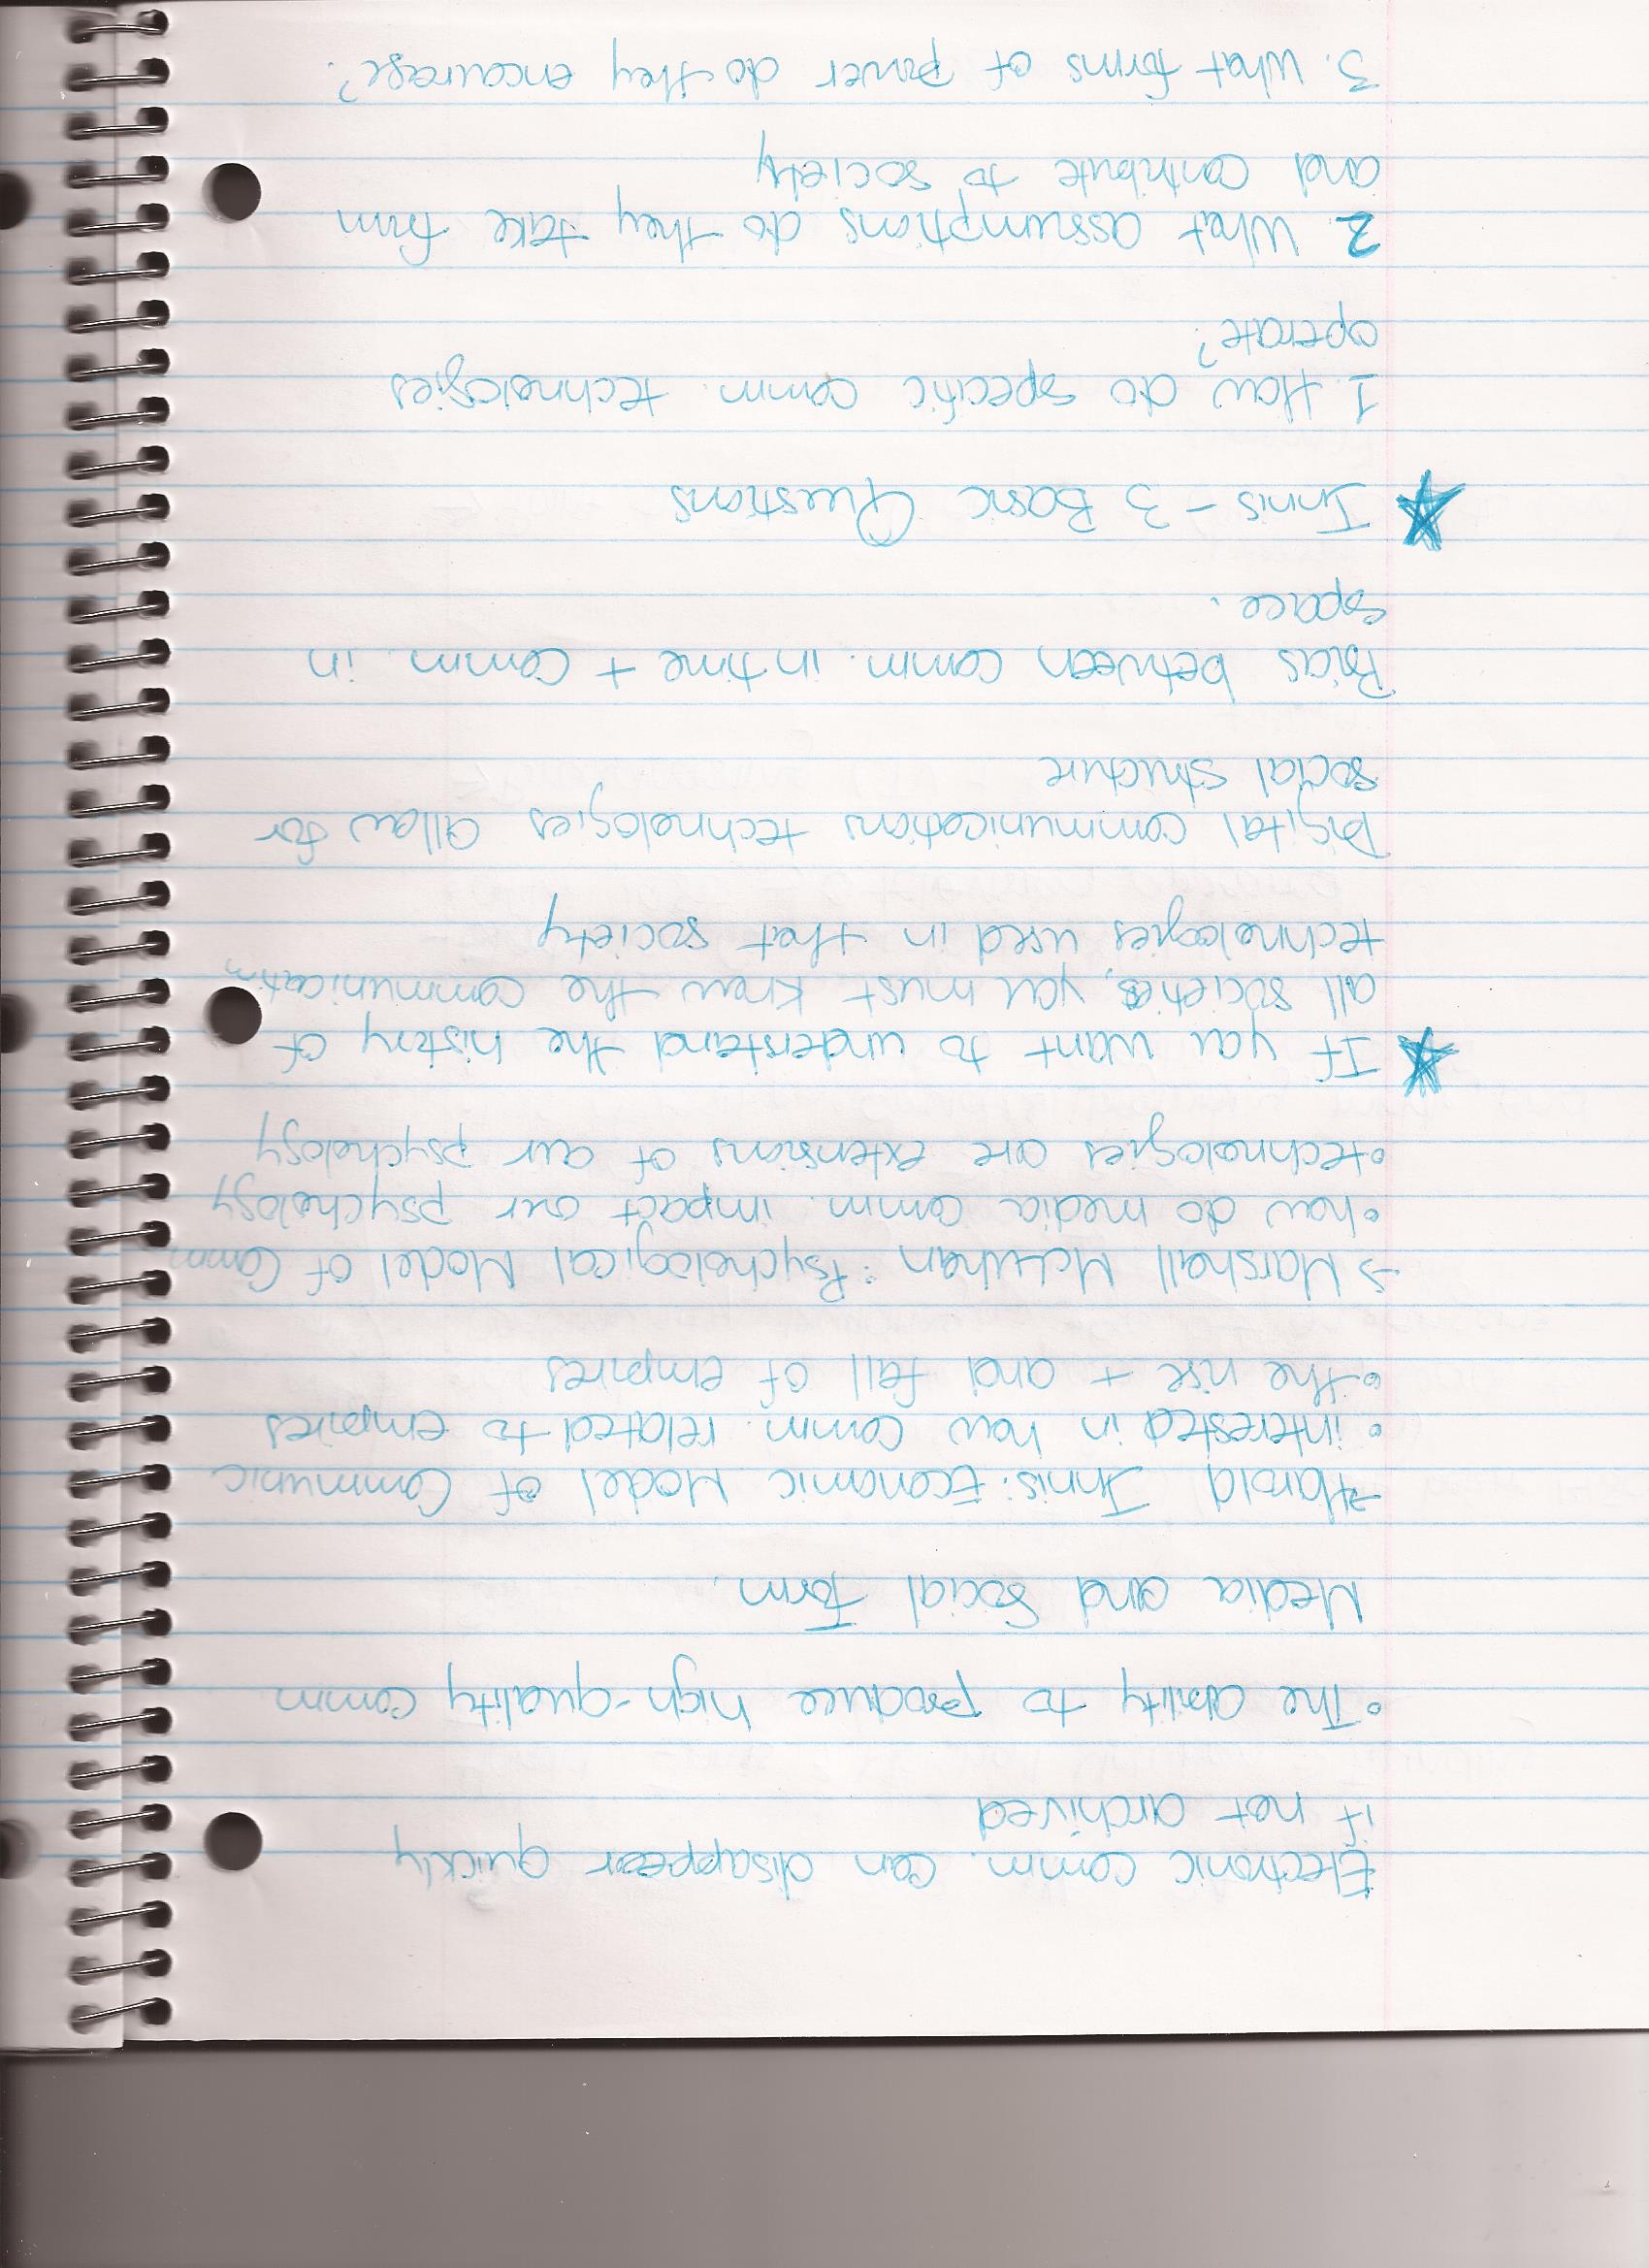 Electronic comm. can disappear quickly
if not archived
• The ability to produce high-quality comm
Media and Social Form.
→ Harold Innis: Economic Model of Communic
• interested in how comm. related to empires
• the rise + and fall of empires
→ Marshall McLuhan: Psychological Model of Comm
• how do media comm. impact our psychology
• technologies are extensions of our psychology
★ If you want to understand the history of
all societies, you must know the communication
technologies used in that society
Digital communications technologies allow for
social structure
Bias between comm. in time + comm. in
space.
★ Innis - 3 Basic Questions
1. How do specific comm. technologies
operate?
2. What assumptions do they take from
and contribute to society
3. What forms of power do they encourage?